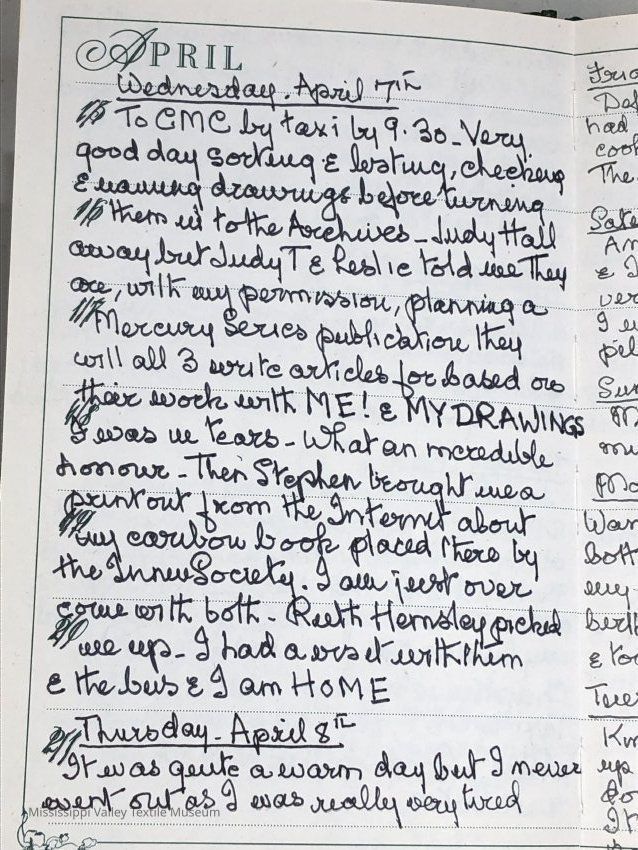 APRIL
Wednesday. April 7th
15 To CMC by taxi by 9.30 - Very
good day sorting & listing, checking
& naming drawings before turning
16 them in to the Archives - Judy Hall
away but Judy T & Leslie told me They
are, with my permission, planning a
17 Mercury Series publication they
will all 3 write articles for based on
their work with ME! & MY DRAWINGS
18 I was in tears - What an incredible
honour - Then Stephen brought me a
printout from the Internet about
19 my caribou book placed there by
the Innu Society. I am just over
come with both - Ruth Hemsley picked
20 me up - I had a visit with them
& the bus & I am HOME
21 Thursday - April 8th
It was quite a warm day but I never
went out as I was really very tired
Mississippi Valley Textile Museum
Frid
had
The
Satu
&
ver
Wan
both
my
& to
up
It